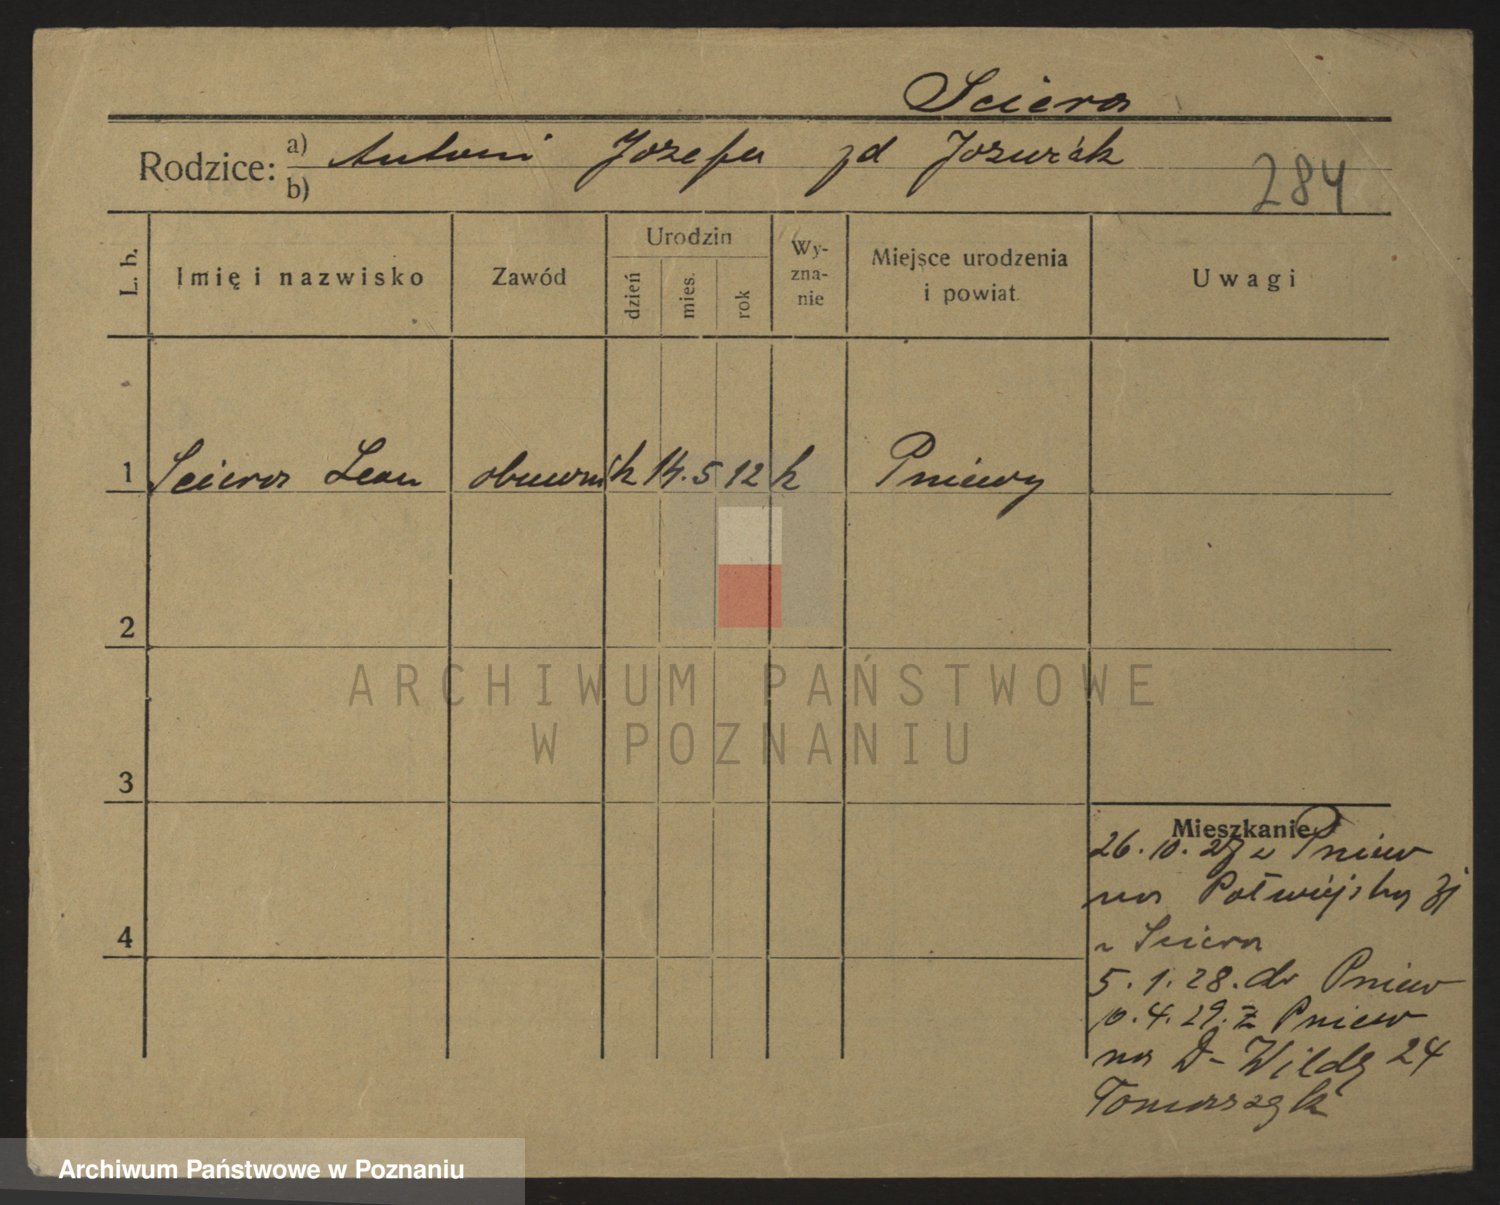 Sciera
Rodzice: a) Antoni Jozefa zd Jozwiak
b)
284
L. b.
Imię i nazwisko
Zawód
Urodzin
dzień
mies.
rok
Wy-
zna-
nie
Miejsce urodzenia
i powiat.
Uwagi
1 Sciera Leon obuwnik 14. 5 12 k Pniewy
2
3
4
Mieszkanie
26. 10. 27 z Pniew
na Półwiejską
u Sciera
5. 1. 28. do Pniew
10. 4. 29. z Pniew
na D- Wildę 24
Tomaszyk
ARCHIWUM PAŃSTWOWE
W POZNANIU
Archiwum Państwowe w Poznaniu